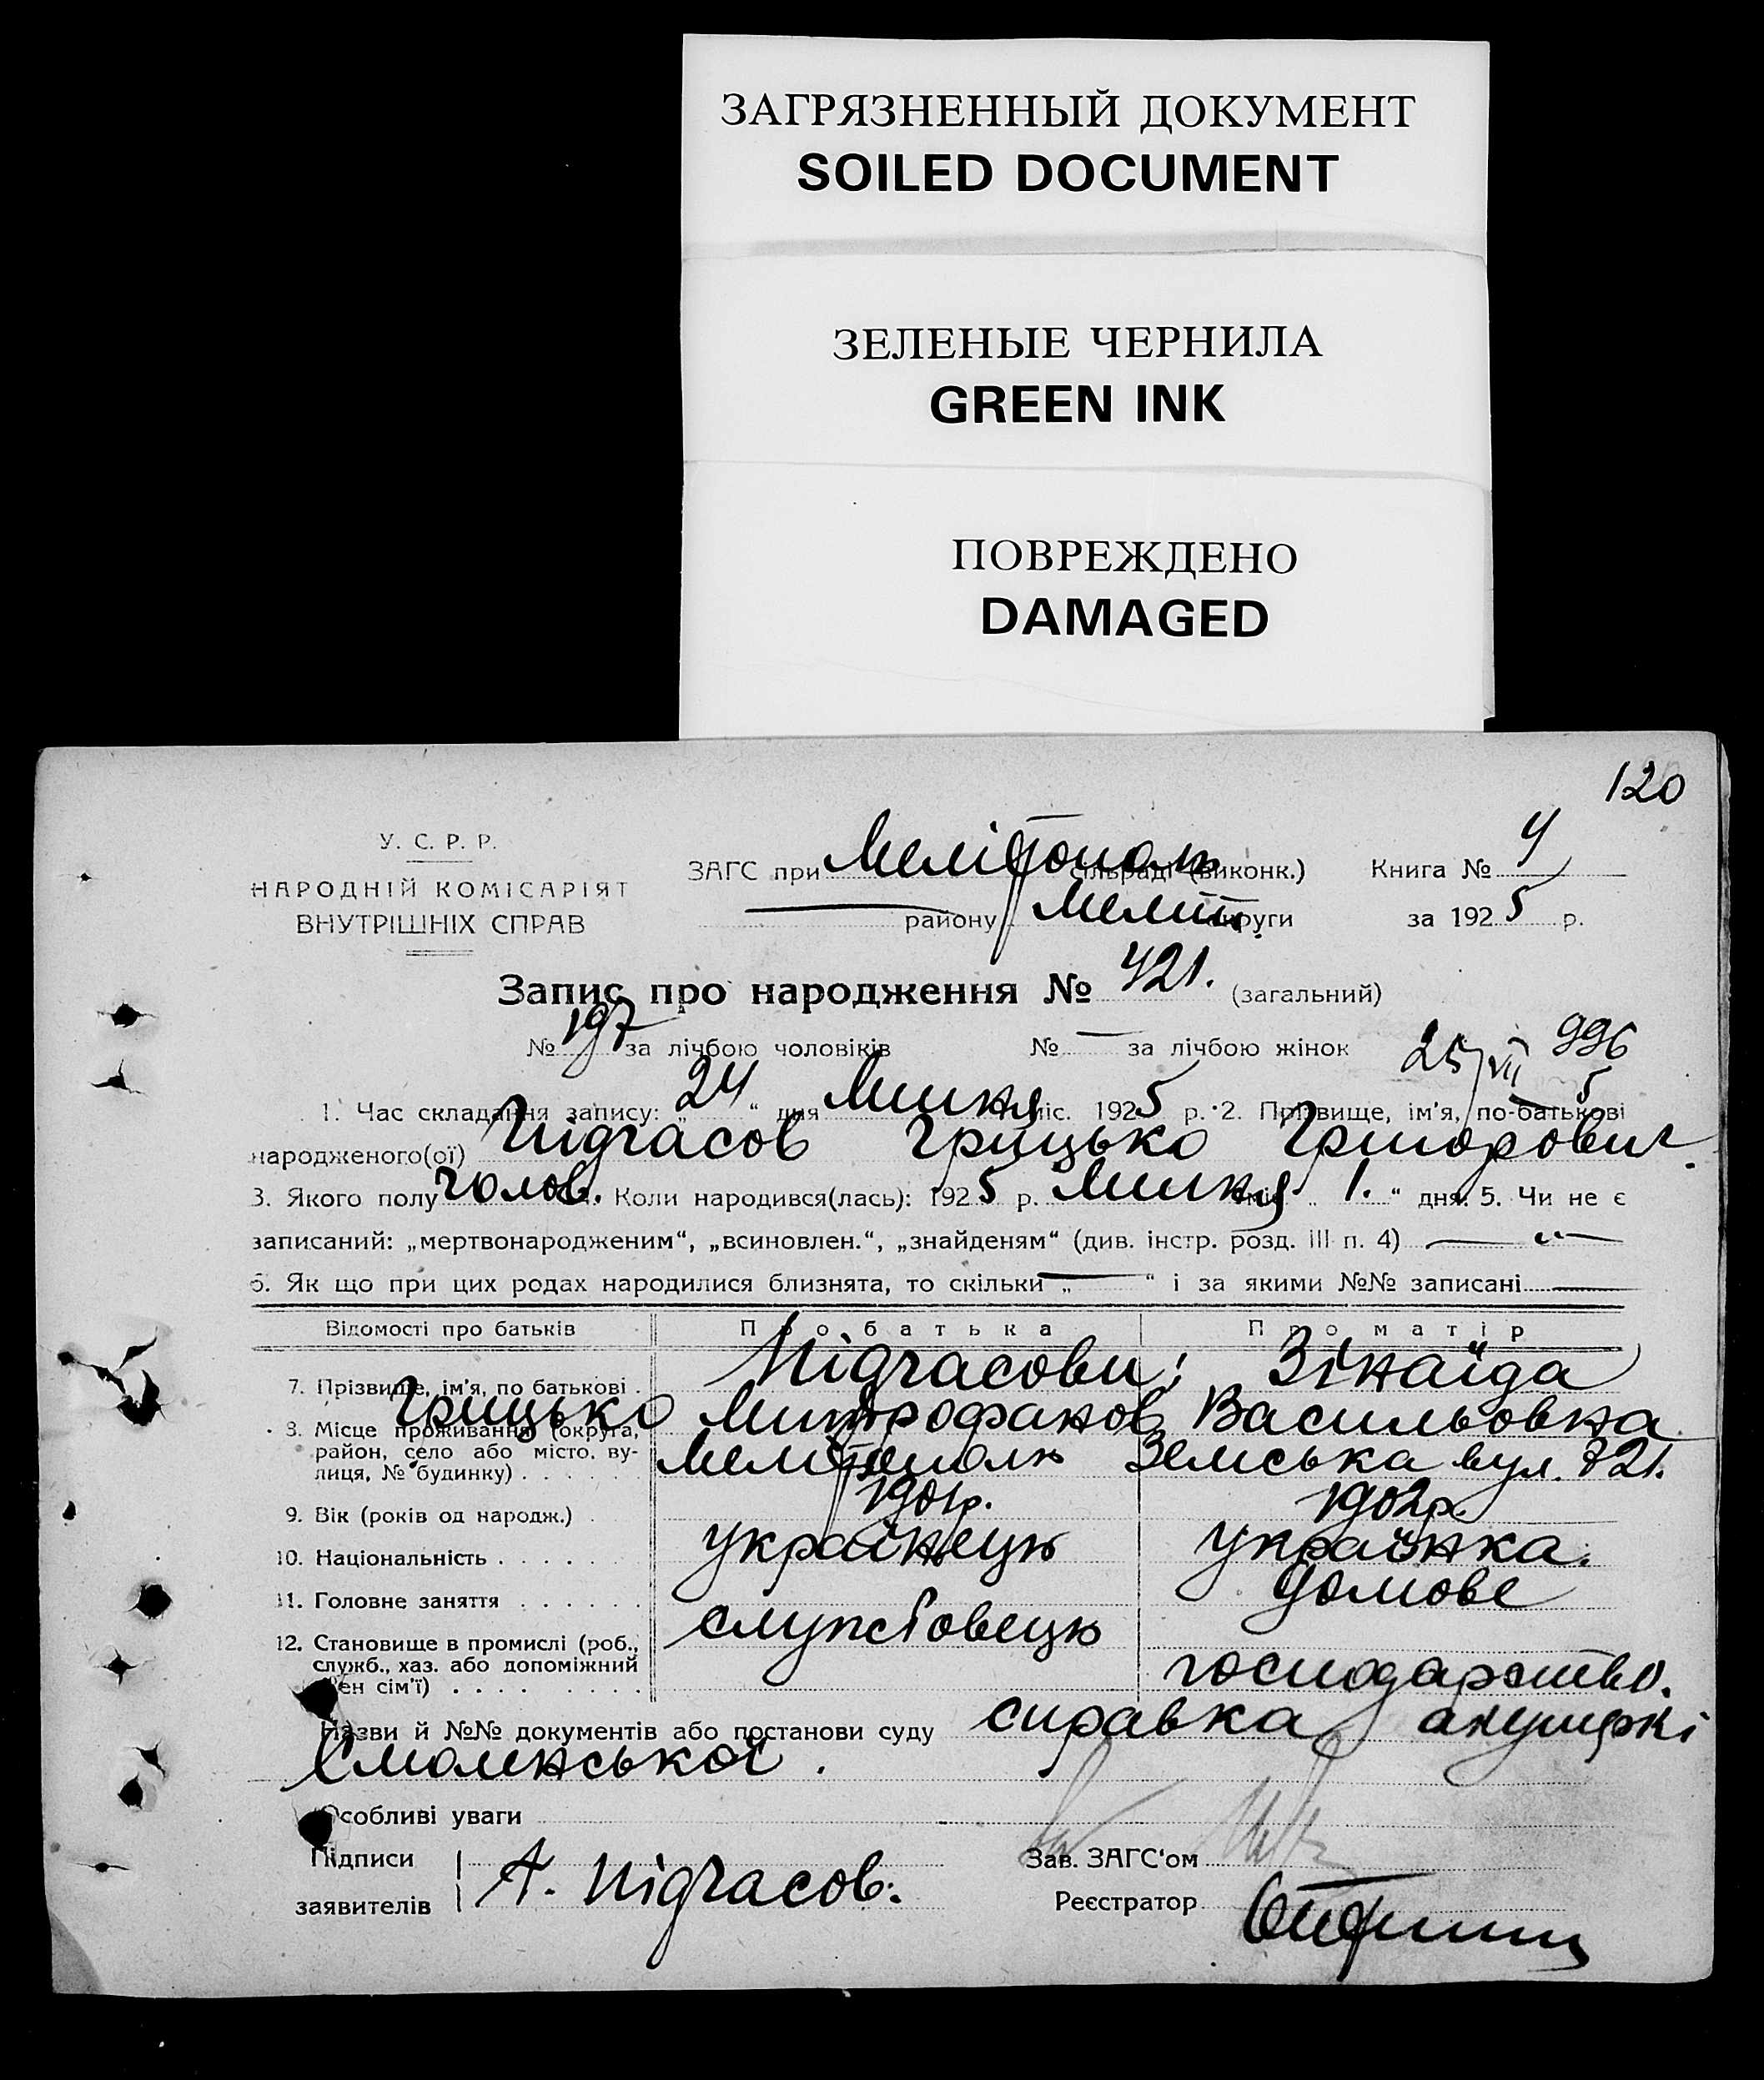 ЗАГРЯЗНЕННЫЙ ДОКУМЕНТ
SOILED DOCUMENT
ЗЕЛЕНЫЕ ЧЕРНИЛА
GREEN INK
ПОВРЕЖДЕНО
DAMAGED
120
У. С. Р. Р.
НАРОДНІЙ КОМІСАРІЯТ
ВНУТРІШНІХ СПРАВ
ЗАГС при Мелітополь сільраді (виконк.) Книга № 4
району Мелит. округи за 1925 р.
Запис про народження № 421. (загальний)
№ 197 за лічбою чоловіків № — за лічбою жінок 25/VII 5 996
1. Час складання запису: „24“ дня Липня міс. 1925 р. 2. Прізвище, ім'я, по-батькові
народженого(ої) Підчасов Грицько Григорович.
3. Якого полу чолов. Коли народився(лась): 1925 р. Липня міс. „1.“ дня. 5. Чи не є
записаний: „мертвонародженим“, „всиновлен.“, „знайденям“ (див. інстр. розд. III п. 4) —
6. Як що при цих родах народилися близнята, то скільки „—“ і за якими №№ записані —
Відомості про батьків Про батька Про матір
7. Прізвище, ім'я, по батькові . Підчасови; Зінаїда
Грицько Митрофанов Васильовна
8. Місце проживання (округа, район, село або місто, вулиця, № будинку) . . . . . Мелітополь Земська вул. 721.
9. Вік (років од народж.) . 1901р. 1902р.
10. Національність . . . . . українець українка.
11. Головне заняття . . . . . . службовець домове
12. Становище в промислі (роб., служб., хаз. або допоміжний член сім'ї) . . . . господарство.
Назви й №№ документів або постанови суду справка акушеркі
Смоленської.
Особливі уваги
Підписи
заявителів А. Підчасов.
Зав. ЗАГС'ом
Реєстратор